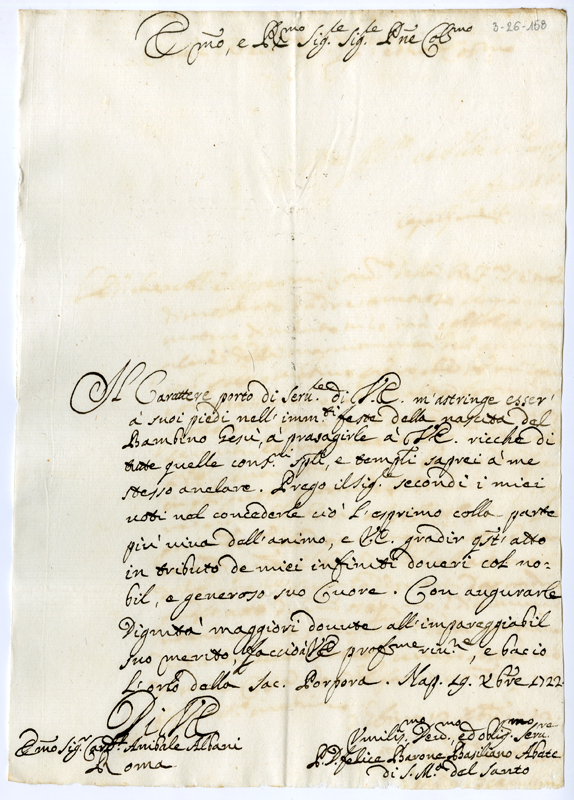 3-26-158
E.mo, e R.mo Sig.re Sig.re P.ne Col.mo
Il Carattere porto di Seru.re di V.E. m'astringe esser'
à suoi piedi nell'imm.ti feste della nascita del
Bambino Gesù, à prasagirle à V.E. ricche di
tutte quelle cons.ni sp.li, e temp.li saprei à me
stesso anelare. Prego il Sig.re secondi i miei
voti nel concederle ciò l'esprimo colla parte
più viva dell'animo, e V.E. gradir q.st' atto
in tributo de miei infiniti doveri col no=
bil, e generoso suo Cuore. Con augurarle
Dignità maggiori douute all'impareggiabil
suo merito, faccio à V.E. prof.me riu.ze, e bacio
l'orlo della Sac. Porpora. Nap. 19. Xbre 1722.
Di V.E.
E.mo Sig.r Card.l Anibale Albani
Roma
Vmilis.mo, Deu.mo, ed oblig.mo Seru.re
P. D. Felice Barone Basiliano Abate
di S. M.a del Santo